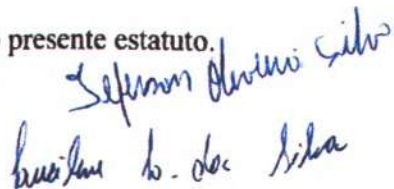 presente estatuto.
Jeferson Oliveira Silva
Lucilene b. da Silva